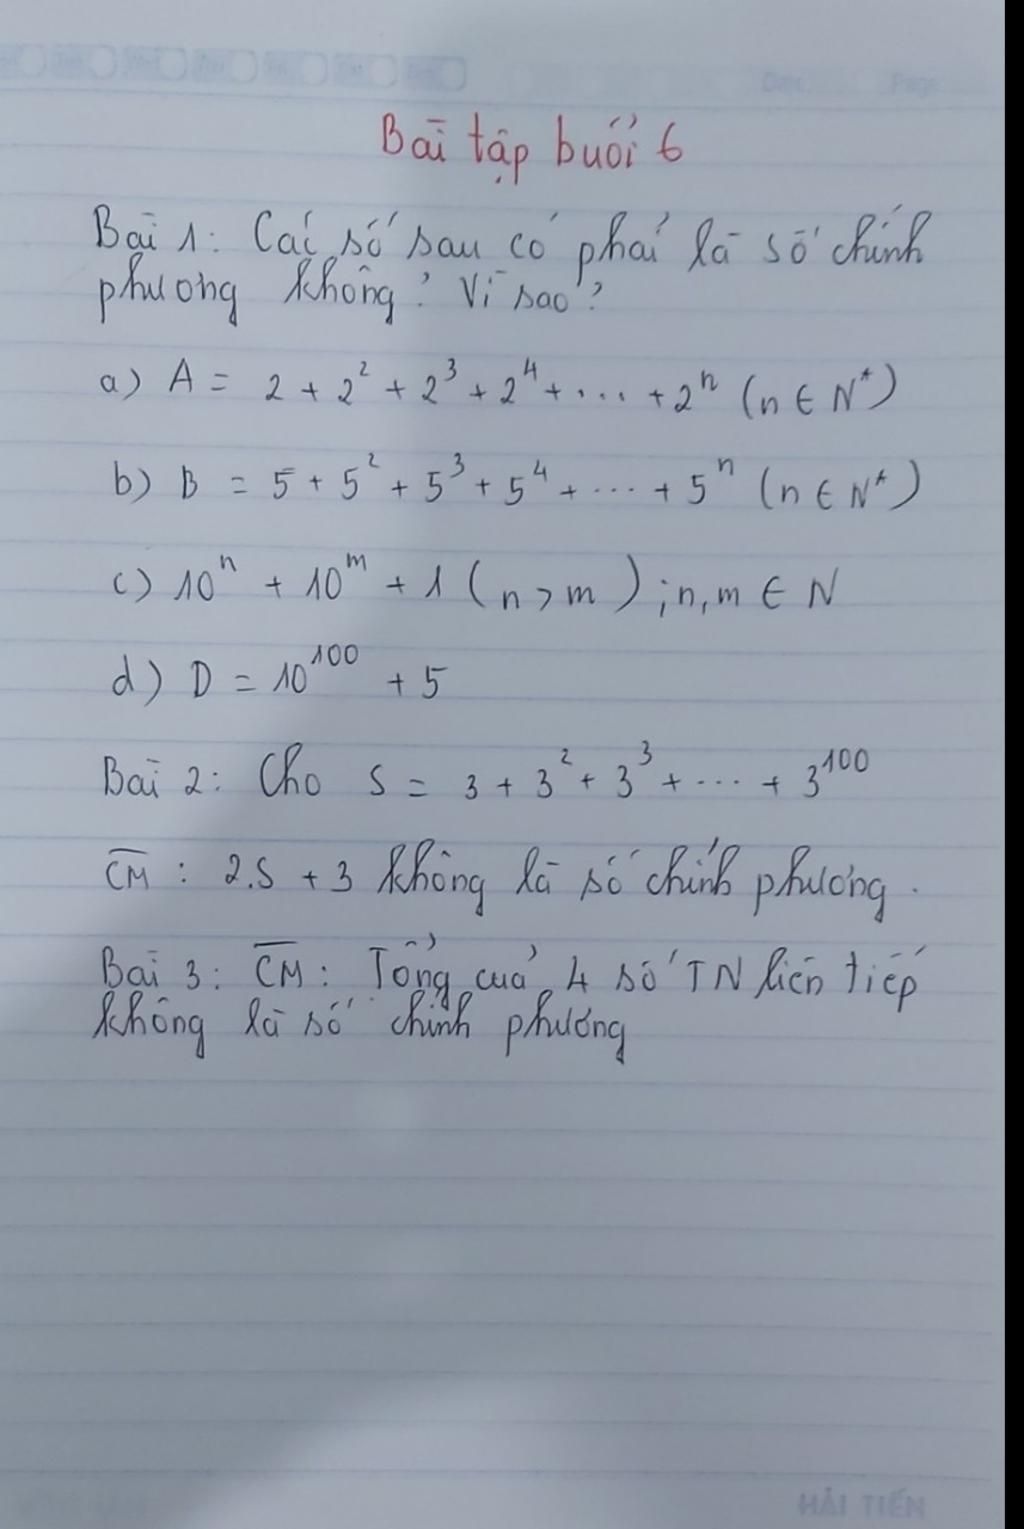 Bài tập buổi 6
Bài 1: Các số sau có phải là số chính
phương không? Vì sao?
a) A = 2 + 2² + 2³ + 2⁴ + ... + 2ⁿ (n ∈ N*)
b) B = 5 + 5² + 5³ + 5⁴ + ... + 5ⁿ (n ∈ N*)
c) 10ⁿ + 10ᵐ + 1 (n > m); n, m ∈ N
d) D = 10¹⁰⁰ + 5
Bài 2: Cho S = 3 + 3² + 3³ + ... + 3¹⁰⁰
CM: 2.S + 3 không là số chính phương.
Bài 3: CM: Tổng của 4 số TN liên tiếp
không là số chính phương
HẢI TIẾN